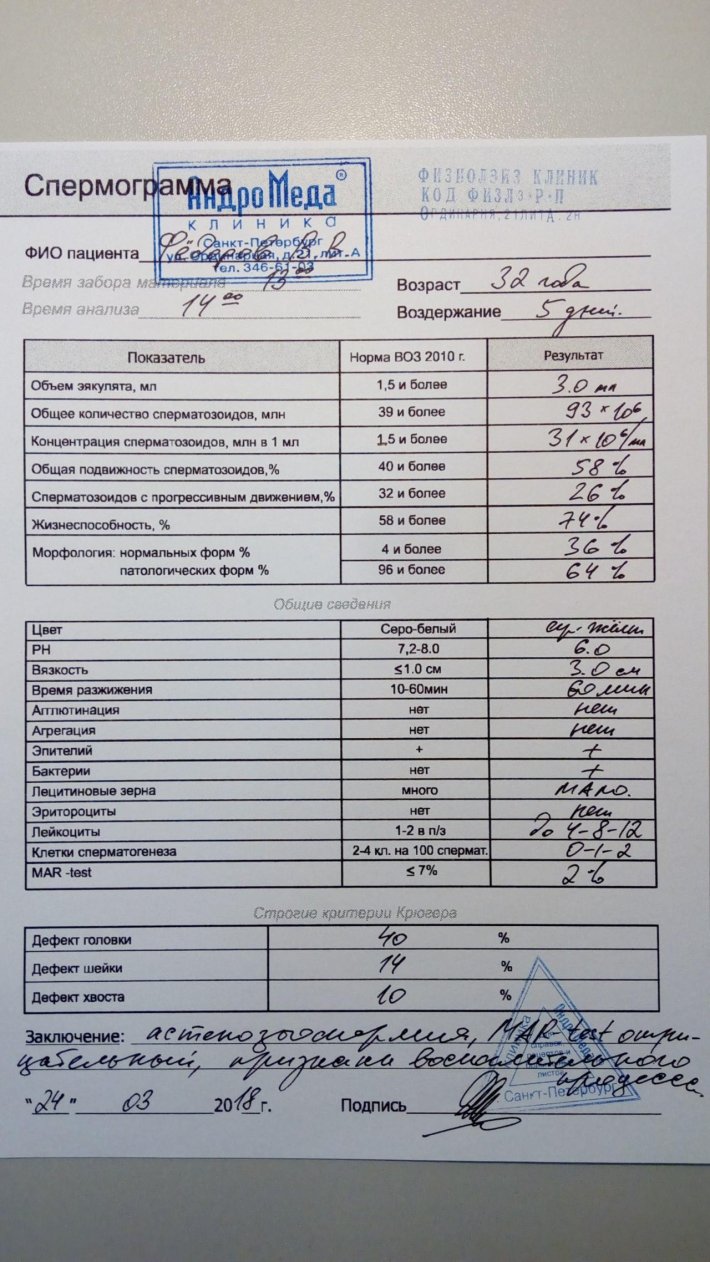 Спермограмма
АндроМеда®
КЛИНИКА
Санкт-Петербург
ул. Ординарная, д.21, лит. А
тел. 346-61-03
ФИЗИОЛЭЙЗ КЛИНИК
КОД ФИЗЛЭ-Р-П
ОРДИНАРНАЯ, 21 ЛИТА. 2Н
ФИО пациента Федоров В.В
Время забора материала 13 00
Возраст 32 года
Время анализа 14 00
Воздержание 5 дней.
Показатель Норма ВОЗ 2010 г. Результат
Объем эякулята, мл 1,5 и более 3.0 мл
Общее количество сперматозоидов, млн 39 и более 93 × 10⁶
Концентрация сперматозоидов, млн в 1 мл 1,5 и более 31 × 10⁶/мл
Общая подвижность сперматозоидов,% 40 и более 58 %
Сперматозоидов с прогрессивным движением,% 32 и более 26 %
Жизнеспособность, % 58 и более 74 %
Морфология: нормальных форм % 4 и более 36 %
патологических форм % 96 и более 64 %
Общие сведения
Цвет Серо-белый сер.-жёлт
PH 7,2-8.0 6.0
Вязкость ≤1.0 см 3.0 см
Время разжижения 10-60мин 60 мин
Агглютинация нет нет
Агрегация нет нет
Эпителий + +
Бактерии нет +
Лецитиновые зерна много мало.
Эритороциты нет нет
Лейкоциты 1-2 в п/з до 4-8-12
Клетки сперматогенеза 2-4 кл. на 100 спермат. 0-1-2
MAR -test ≤ 7% 2 %
Строгие критерии Крюгера
Дефект головки 40 %
Дефект шейки 14 %
Дефект хвоста 10 %
Заключение: астенозооспермия, MAR-test отри-
цательный, признаки воспалительного
процесса.
"24" 03 2018 г. Подпись
АндроМеда
клиника
Для
справок,
рецептов и
листов
Санкт-Петербург